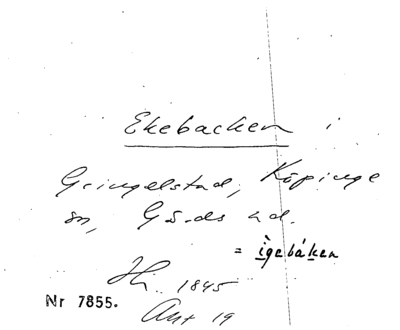 Ekebacken i
Gringelstad, Köpinge
sn, Gärds hd.
= ìgebáken
Hi. 1845
Nr 7855.
Akt 19